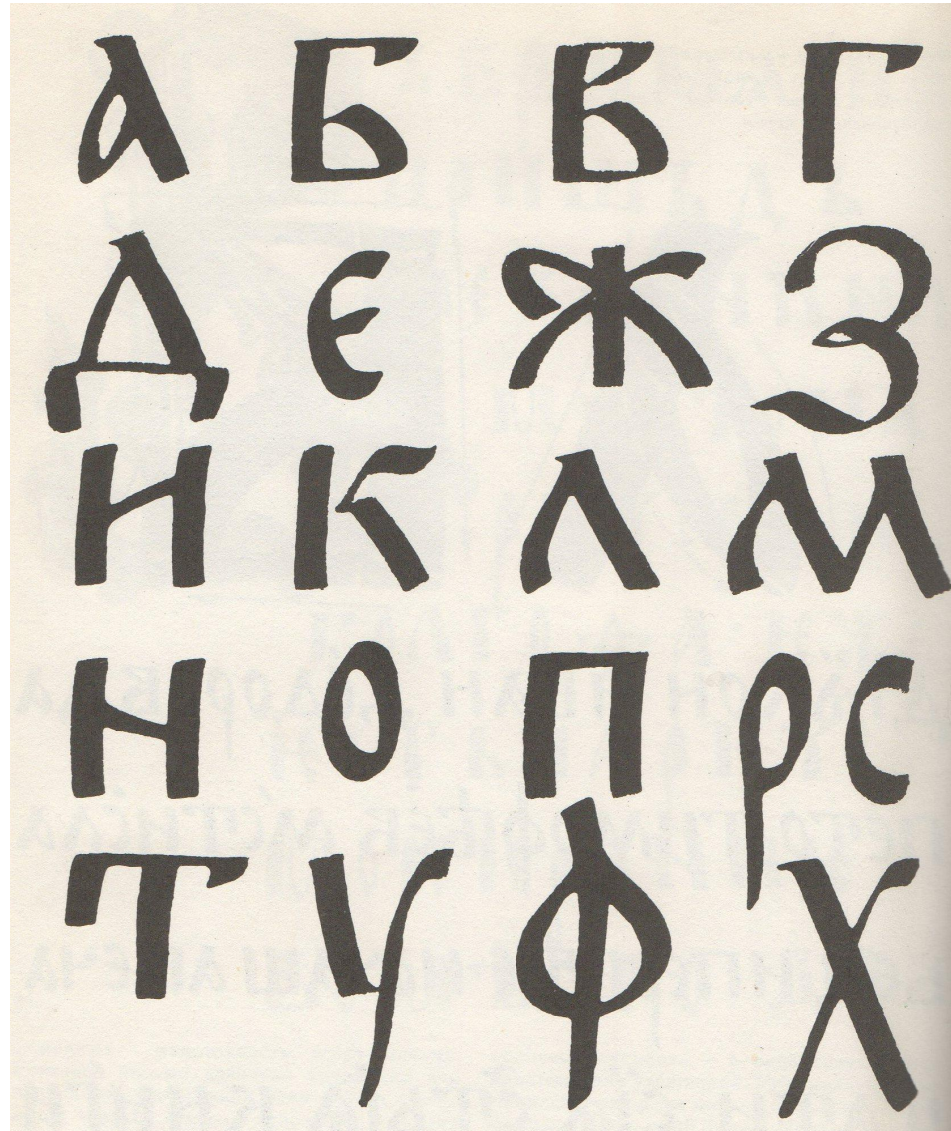 А Б В Г
Д Е Ж З
И К Л М
Н О П Р С
Т У Ф Х